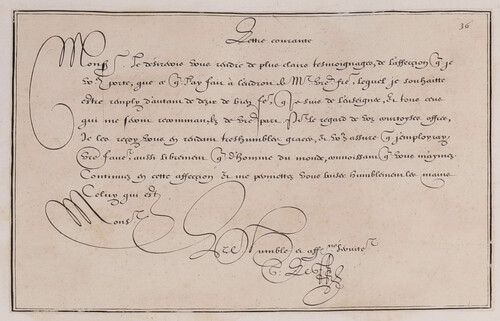 36
Lettre courante
Mons.r Je desirerois vous rendre de plus clairs tesmoignages, de l'affection q̃ je
vo9 porte, que ce q̃ j'ay fait à l'endroit de Mr vre fre. lequel je souhaitte
estre remply d'autant de dezir de bien fre. q̃ je suis de l'enseigner, & tous ceux
qui me seront recommandez de vre part. Po.r le regard de voz courtoyses offres,
Je les reçoy vous en rendant treshumbles graces, & vo9 assure q̃ j'employray
vre faveur aussi librement q̃ d'homme du monde, connoissant q̃ vous m'aymez.
Continuez en cette affection & me permettez vous baiser humblement les mains
Celuy qui est
Mons.r
Vre humble et affnné servite.r